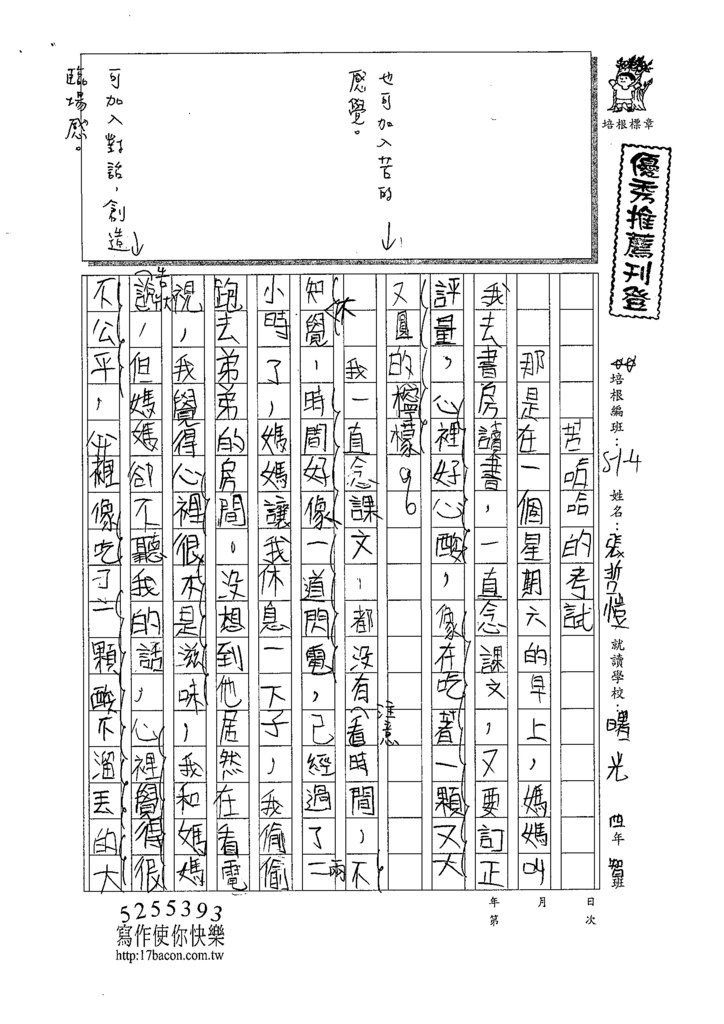 培根標章
優秀推薦刊登
培根編班：514 姓名：張哲愷 就讀學校：曙光 四年 智班
也可加入苦的
感覺。
可加入對話，創造
臨場感。
苦哈哈的考試
那是在一個星期六的早上，媽媽叫
我去書房讀書，一直念課文，又要訂正
評量，心裡好心酸，像在吃著一顆又大
又圓的檸檬。
我一直念課文，都沒有看時間，不
注意
知不覺，時間好像一道閃電，已經過了二兩
小時了，媽媽讓我休息一下子，我偷偷
跑去弟弟的房間，沒想到他居然在看電
視，我覺得心裡很不是滋味，我和媽媽
說，但媽媽卻不聽我的話，心裡覺得很
告狀
不公平，心裡像吃了一顆酸不溜丟的大
年 月 日
第 次
5255393
寫作使你快樂
http:17bacon.com.tw